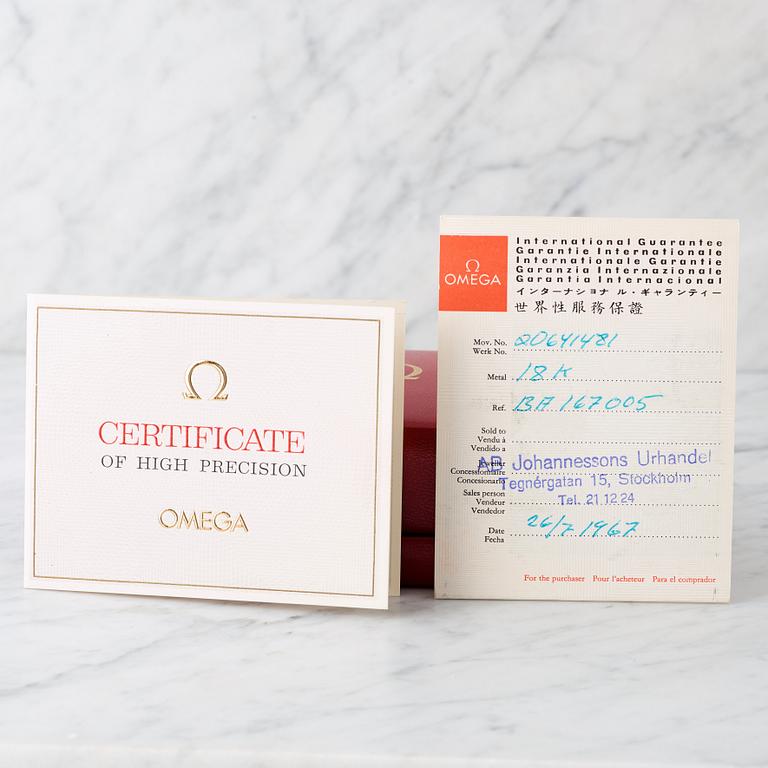 Ω
CERTIFICATE
OF HIGH PRECISION
OMEGA
Ω
Ω
OMEGA
International Guarantee
Garantie Internationale
Internationale Garantie
Garanzia Internazionale
Garantia Internacional
インターナショナル・ギャランティー
世界性服務保證
Mov. No. 20641481
Werk No.
Metal 18 K
Ref. BA 167005
Sold to
Vendu à
Vendido a
AB Johannessons Urhandel
Concessionnaire
Concesionario
Tegnérgatan 15, Stockholm
Sales person
Vendeur
Vendedor
Tel. 21 12 24
Date 26/7 1967
Fecha
For the purchaser Pour l'acheteur Para el comprador